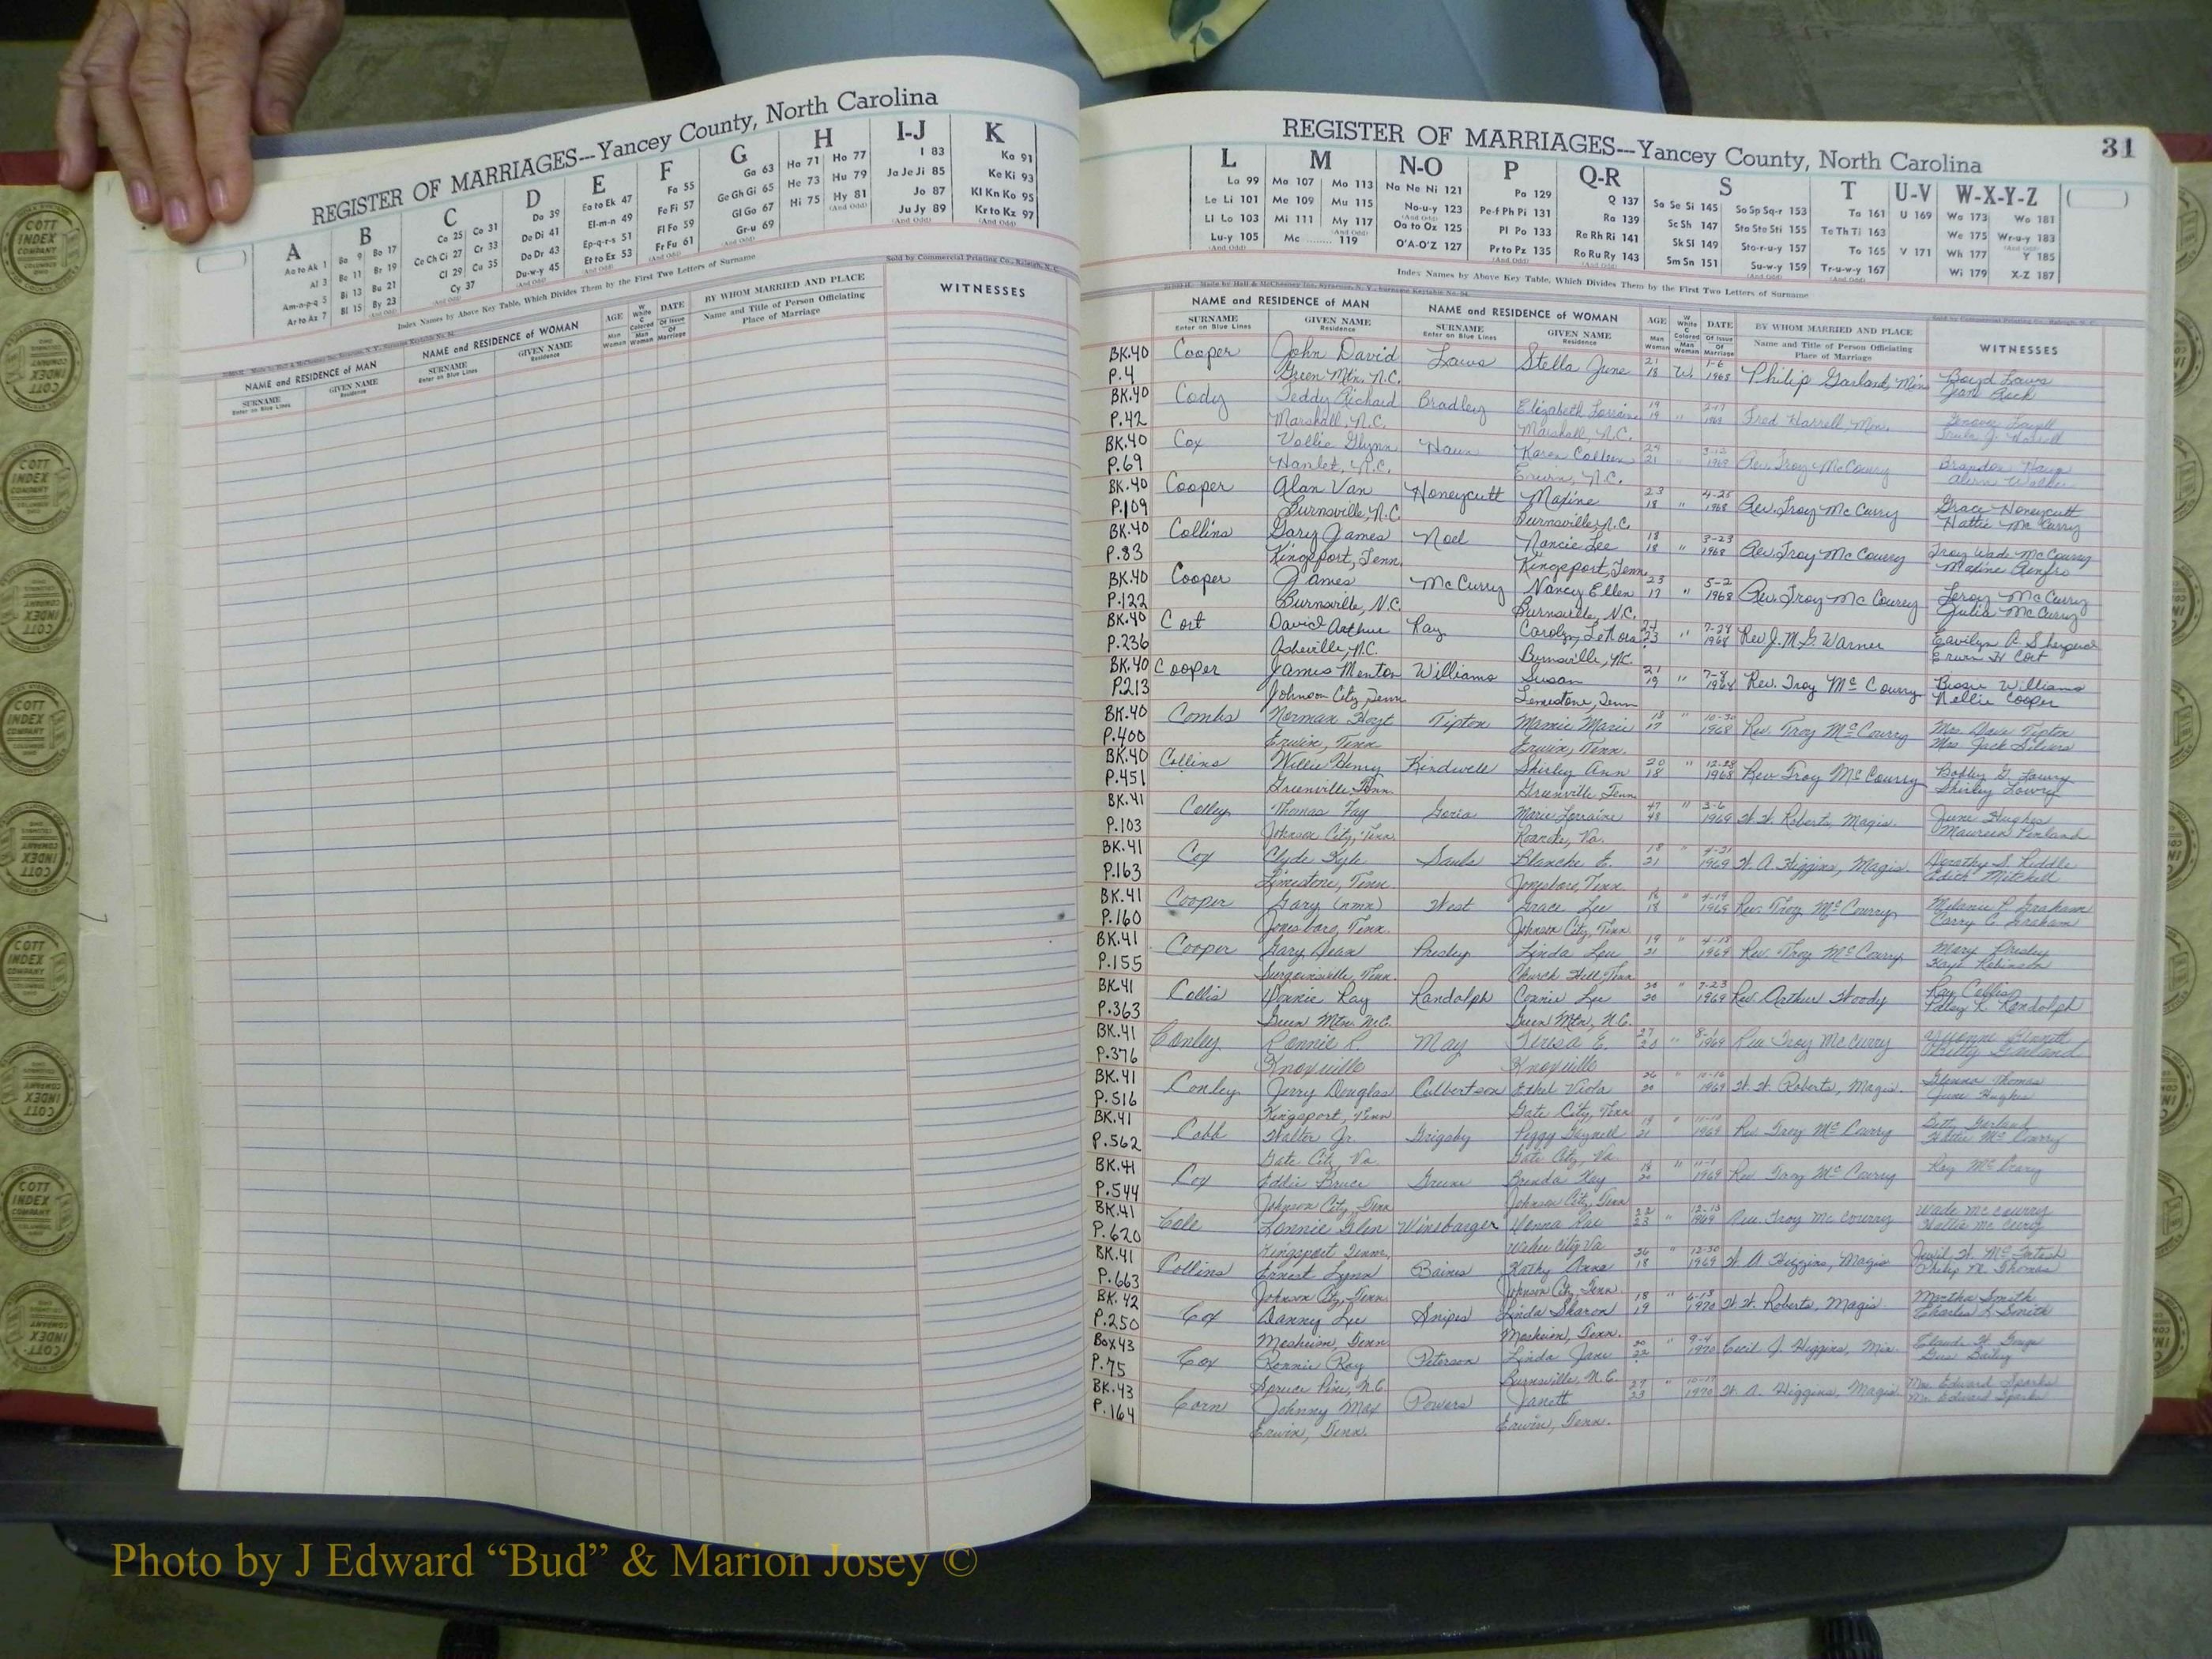 REGISTER OF MARRIAGES---Yancey County, North Carolina
A B C D E F G H I-J K
Aa to Ak 1
Al 3
Am-n-p-q 5
Ar to Az 7
Ba 9 Bo 17
Be 11 Br 19
Bi 13 Bu 21
Bl 15 By 23
Ca 25 Co 31
Ce Ch Ci 27 Cr 33
Cl 29 Cu 35
Cy 37
Da 39
De Di 41
Do Dr 43
Du-w-y 45
Ea to Ek 47
El-m-n 49
Ep-q-r-s 51
Et to Ez 53
Fa 55
Fe Fi 57
Fl Fo 59
Fr Fu 61
Ga 63
Ge Gh Gi 65
Gl Go 67
Gr-u 69
Ha 71 Ho 77
He 73 Hu 79
Hi 75 Hy 81
I 83
Ja Je Ji 85
Jo 87
Ju Jy 89
Ka 91
Ke Ki 93
Kl Kn Ko 95
Kr to Kz 97
Index Names by Above Key Table, Which Divides Them by the First Two Letters of Surname
Sold by Commercial Printing Co., Raleigh, N. C.
NAME and RESIDENCE OF MAN
SURNAME Enter on Blue Lines
GIVEN NAME Residence
NAME and RESIDENCE OF WOMAN
SURNAME Enter on Blue Lines
GIVEN NAME Residence
AGE Man Woman
W White C Colored Man Woman
DATE Of Issue Of Marriage
BY WHOM MARRIED AND PLACE
Name and Title of Person Officiating
Place of Marriage
WITNESSES
REGISTER OF MARRIAGES---Yancey County, North Carolina
31
L M N-O P Q-R S T U-V W-X-Y-Z
La 99
Le Li 101
Ll Lo 103
Lu-y 105
Ma 107 Mo 113
Me 109 Mu 115
Mi 111 My 117
Mc 119
Na Ne Ni 121
No-u-y 123
Oa to Ox 125
O'A-O'Z 127
Pa 129
Pe-f Ph Pi 131
Pl Po 133
Pr to Pz 135
Q 137
Ra 139
Re Rh Ri 141
Ro Ru Ry 143
Sa Se Si 145 So Sp Sq-r 153
Sc Sh 147 Sta Ste Sti 155
Sk Sl 149 Sto-r-u-y 157
Sm Sn 151 Su-w-y 159
Ta 161
Te Th Ti 163
To 165
Tr-u-w-y 167
U 169
V 171
Wa 173 Wo 181
We 175 Wr-u-y 183
Wh 177 Y 185
Wi 179 X-Z 187
Index Names by Above Key Table, Which Divides Them by the First Two Letters of Surname
NAME and RESIDENCE OF MAN
SURNAME Enter on Blue Lines
GIVEN NAME Residence
NAME and RESIDENCE OF WOMAN
SURNAME Enter on Blue Lines
GIVEN NAME Residence
AGE Man Woman
W White C Colored Man Woman
DATE Of Issue Of Marriage
BY WHOM MARRIED AND PLACE
Name and Title of Person Officiating
Place of Marriage
WITNESSES
BK.40 Cooper John David Laws Stella June 21 W. 1-6 Philip Garland, Min Boyd Laws
P.4 Green Mtn. N.C. 18 1968
BK.40 Cody Teddy Richard Bradley Elizabeth Lorraine 19 " Fred Harrell, Min.
P.42 Marshall, N.C. Marshall, N.C. 19
BK.40 Cox Glynn Karen Colleen " Rev. Troy McCourry
P.69 Hamlet, N.C. Erwin, N.C. 21
BK.40 Cooper Alan Van Honeycutt Maxine 23 " 4-25 Rev. Troy McCurry Grace Honeycutt
P.109 Burnsville, N.C. Burnsville, N.C. 18 1968 Hattie McCurry
BK.40 Collins Gary James Noel Nancie Lee 18 " 3-23 Rev. Troy McCourry Troy Wade McCourry
P.83 Kingsport, Tenn. Kingsport, Tenn. 18 1968 Maxine Renfro
BK.40 Cooper James McCurry Nancy Ellen 23 " 5-2 Rev. Troy McCourry Leroy McCurry
P.122 Burnsville, N.C. Burnsville, N.C. 17 1968 Julia McCurry
BK.40 Cort David Arthur Ray Carolyn LeNora " Rev J.M.G. Warner
P.236 Asheville, N.C. Burnsville, N.C. 23 1968 Erwin H Cort
BK.40 Cooper James Menton Williams Susan 21 " Rev. Troy McCourry Bessie Williams
P.213 Johnson City, Tenn Limestone, Tenn 19 1968 Nellie Cooper
BK.40 Combs Norman Hoyt Tipton Mamie Marie 18 " Rev. Troy McCourry Mrs. Dave Tipton
P.400 Erwin, Tenn Erwin, Tenn. 17 1968 Mrs. Jack Silvers
BK.40 Collins Willie Henry Kindwell Shirley Ann 20 " 12-28 Rev Troy McCourry Bobby G. Lowry
P.451 Greenville, Tenn. Greenville, Tenn. 18 1968 Shirley Lowry
BK.41 Colley Thomas Fay Marie Lorraine 47 " 3-6 W. W. Roberts, Magis. June Hughes
P.103 Johnson City, Tenn. Roanoke, Va. 48 1969 Maureen Penland
BK.41 Cox Clyde Kyle Saule Blanche E. 18 " W. A. Higgins, Magis. Dorothy S. Riddle
P.163 Limestone, Tenn. Jonesboro, Tenn. 21 1969 Edith Mitchell
BK.41 Cooper Gary (nmn) West Grace Lee " 4-19 Rev. Troy McCourry Melanie P. Graham
P.160 Jonesboro, Tenn. Johnson City, Tenn 18 1969
BK.41 Cooper Gary Dean Presley Linda Lou 19 " Rev. Troy McCourry Mary Presley
P.155 Surgoinsville, Tenn. Church Hill, Tenn 21 1969 Kaye Robinson
BK.41 Collis Donnie Ray Randolph Connie Lee 20 " 7-23 Rev. Arthur Woody
P.363 Green Mtn. N.C. Green Mtn, N.C. 20 1969 Patsy K. Randolph
BK.41 Conley Ronnie R May Teresa E. 27 " 8-1 Rev Troy McCurry
P.376 Knoxville Knoxville 1969
BK.41 Conley Jerry Douglas Culbertson Ethel Viola 26 " W. W. Roberts, Magis. Glenna Thomas
P.516 Kingsport, Tenn Gate City, Tenn 20 1969 June Hughes
BK.41 Cobb Walter Jr. Grigsby Peggy 19 " Rev. Troy McCurry Betty Garland
P.562 Gate City Va. Gate City, Va 21 1969
BK.41 Cox Eddie Bruce Greene Brenda Kay " Rev. Troy McCourry
P.544 Johnson City, Tenn Johnson City, Tenn 1969
BK.41 Cole Lonnie Glen Winebarger Donna Rae 22 " 12-13 Rev. Troy McCourry Wade McCourry
P.620 Kingsport Tenn. 23 1969
BK.41 Collins Ernest Lynn Baines Kathy Anna 26 " 12-30 W. A Higgins, Magis
P.663 Johnson City, Tenn Johnson City, Tenn 18 1969 Philip R. Thomas
BK.42 Cox Danny Lee Snipes Linda Sharon 18 " 6-13 W. W. Roberts, Magis Martha Smith
P.250 Mosheim, Tenn Mosheim, Tenn. 19 1970 Charles L Smith
Box43 Cox Ronnie Ray Peterson Linda Jane " 9-4 Cecil J. Higgins, Min.
P.75 Spruce Pine, N.C. Burnsville, N.C. 22 1970 Gus Bailey
BK.43 Corn Johnny Max Powers Janett 27 " 10-17 W. A. Higgins, Magis Mrs. Edward Sparks
P.164 Erwin, Tenn. Erwin, Tenn. 23 1970 Mr. Edward Sparks
COTT INDEX COMPANY COLUMBUS OHIO
Photo by J Edward “Bud” & Marion Josey ©